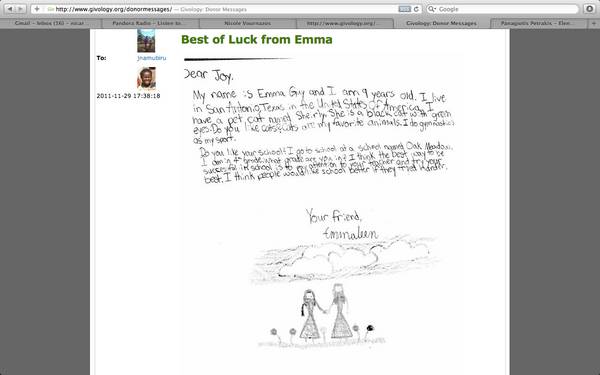 http://www.givology.org/donormessages/ — Givology: Donor Messages
Google
Gmail – Inbox (16) –
Pandora Radio – Listen to...
Nicole Vournazos
http://www.givology.org/...
Givology: Donor Messages
Panagiotis Petrakis –
Best of Luck from Emma
To:
jnamubiru
2011-11-29 17:38:18
Dear Joy,
My name is Emma Guy and I am 9 years old. I live
in San Antonio, Texas in the United States Of America. I
have a pet cat named She is a black cat with green
eyes. Do you like cats? Cats are my favorite animals. I do gymnastics
as my sport.
Do you like your school? I go to school at a school named Oak Meadow.
I am in 4th grade. what grade are you in? I think the best way to be
successful in school is to pay attention to your teacher and try your
best. I think people would like school better if they tried harder.
Your friend,
Emmaleen